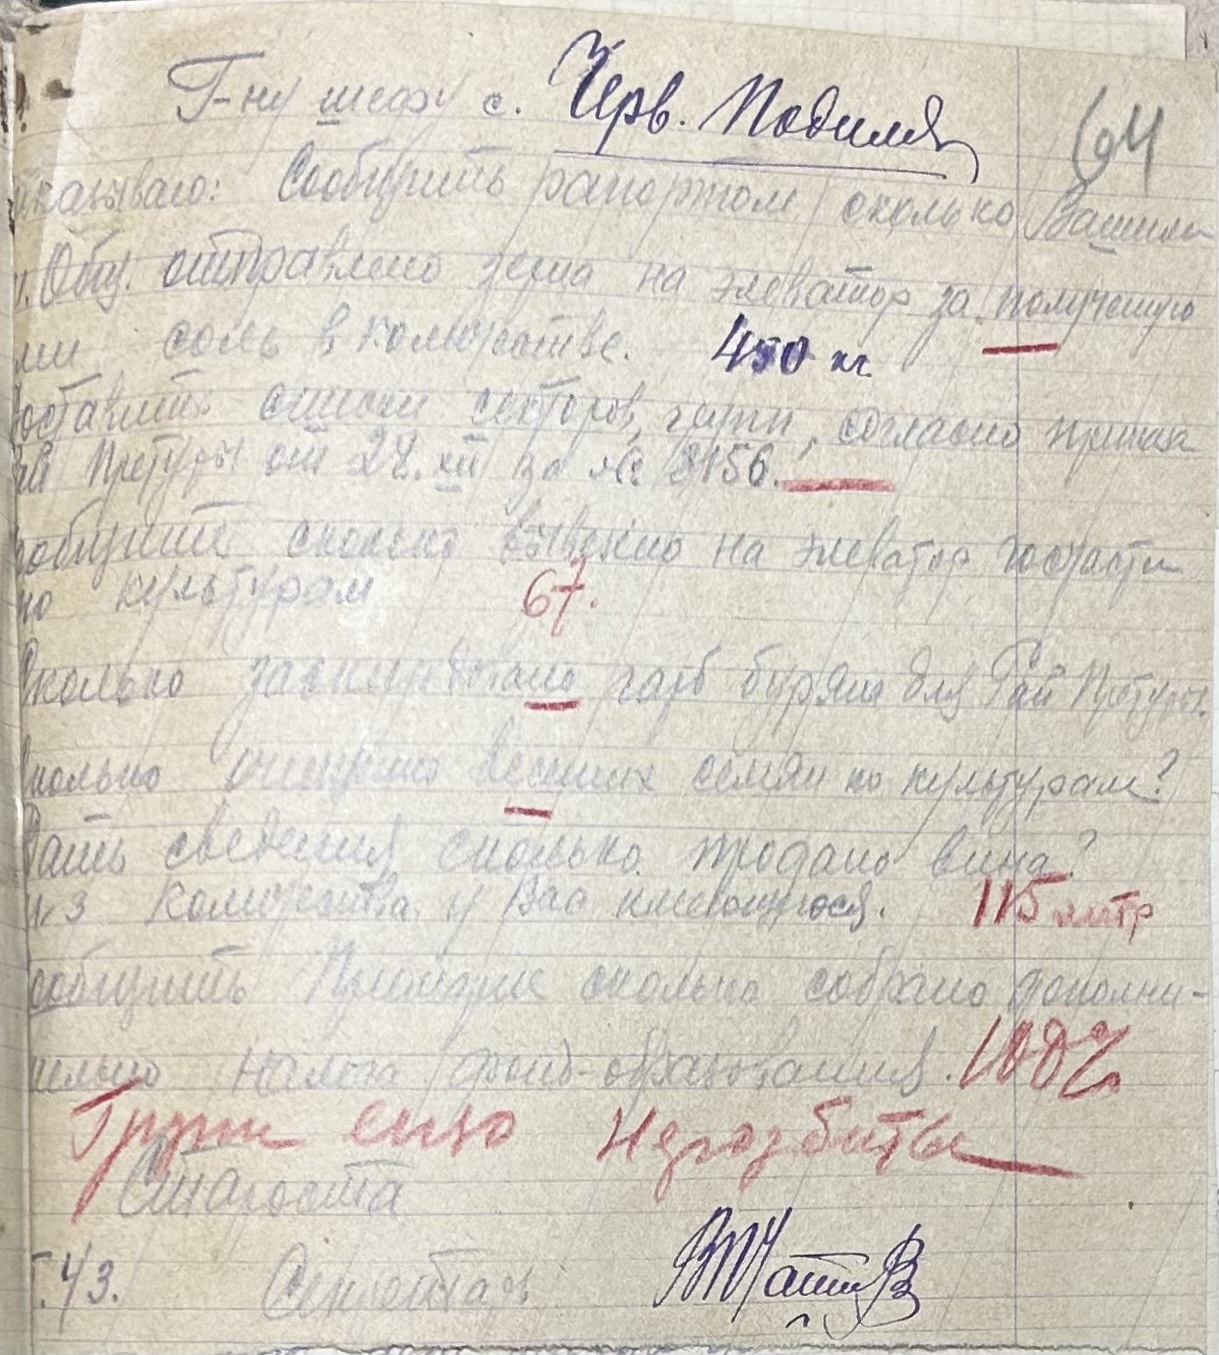 Г-ну шефу с. Черв. Подиля
64
казываю: Сообщить рапортом сколько Вашим
Общ. отправлено зерна на элеватор за полученную
ми соль в количестве. 450 кг
оставить списки секторов, групп, согласно приказ
Претуры от 28. XII за № 8156.
ообщить сколько вывезено на элеватор
по культурам 67.
Сколько гарб бурьяна для Рай Претуры.
колько очищено весенних семян по культурам?
Дать сведения сколько продано вина?
из количества у Вас имеющегося. 115 литр
сообщить сколько собрано дополни-
тельно налога фонд-образования. 100%
Групи ещо нерозбиты
Староста
.43. Секретарь